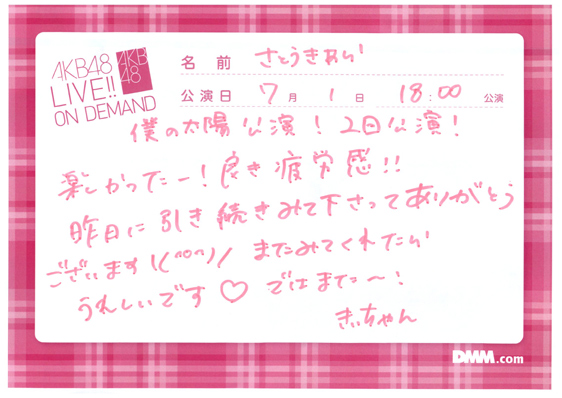 AKB48
LIVE!!
ON DEMAND
AKB
48
名 前 さとうきあい
公演日 7月 1日 18:00 公演
僕の太陽公演!2日公演!
楽しかったー!良き疲労感!!
昨日に引き続きみて下さってありがとう
ございます\(^o^)/ またみてくれたい
うれしいです♡ ではまた〜!
きぃちゃん
DMM.com